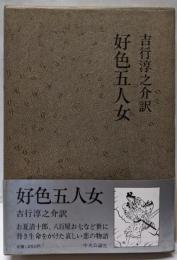 吉行淳之介訳
好色五人女
好色五人女
吉行淳之介訳
お夏清十郎、八百屋お七など世に
背き生命をかけた哀しい恋の物語
中央公論社